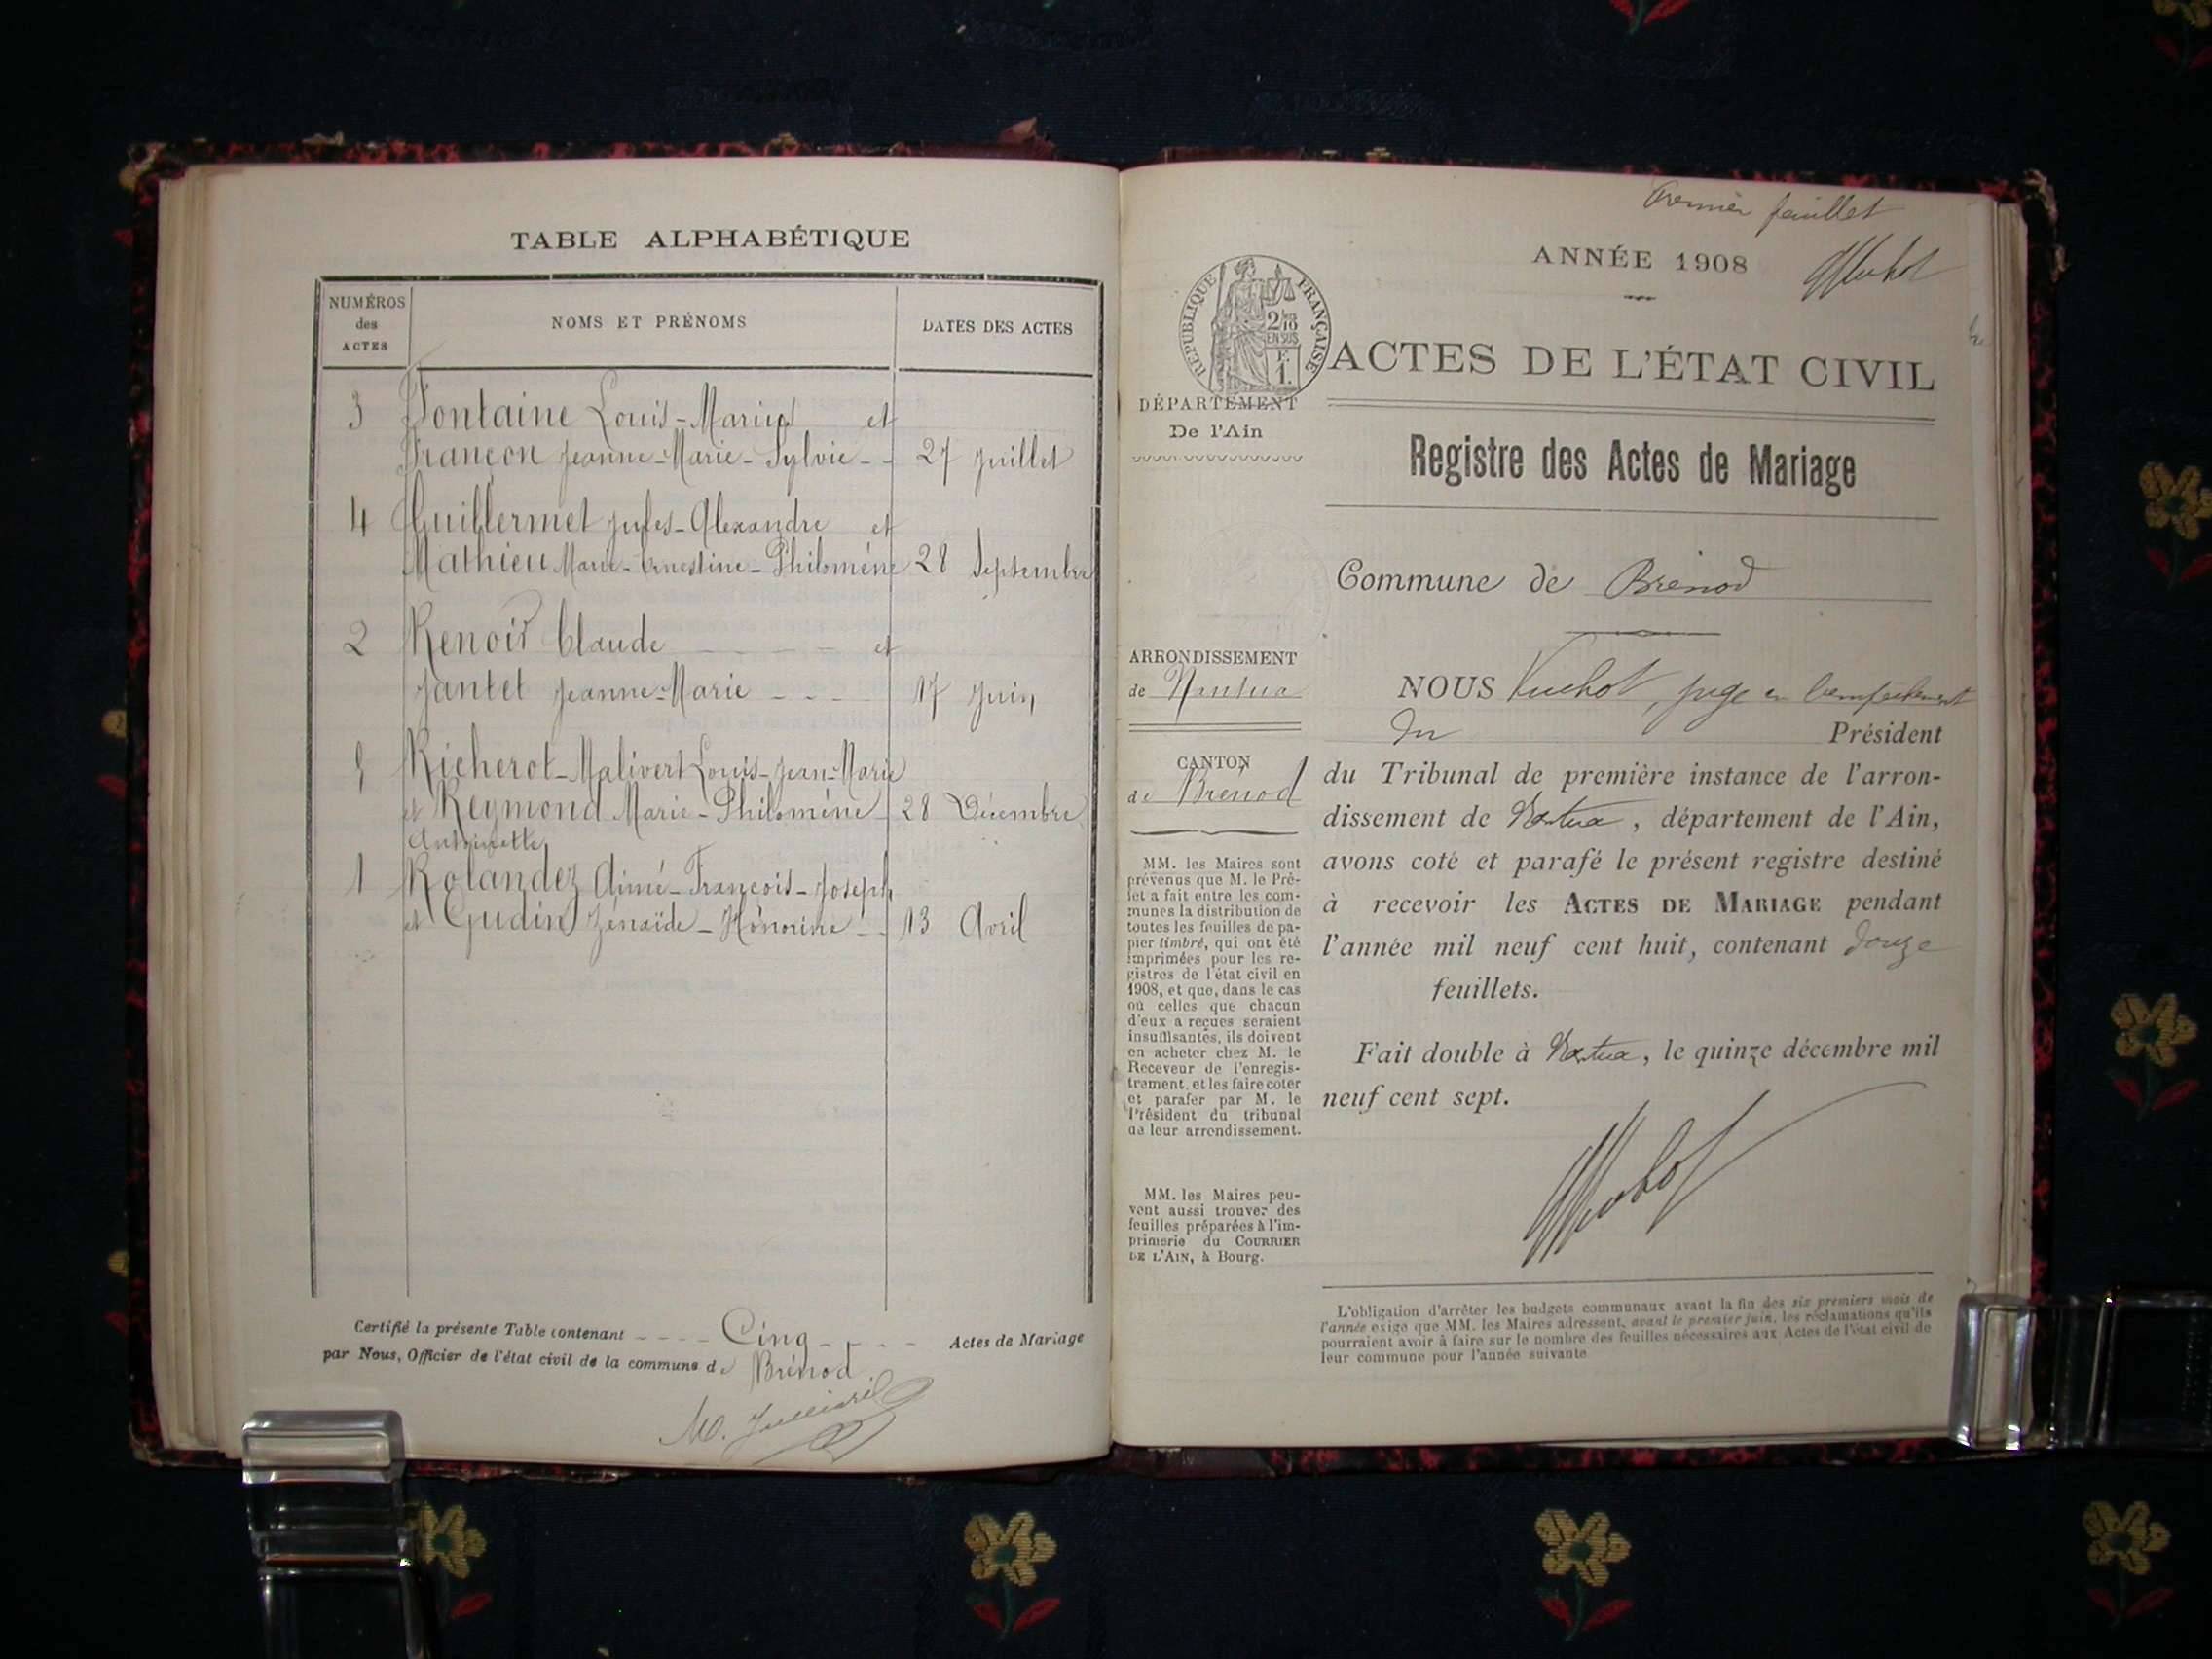 TABLE ALPHABÉTIQUE
NUMÉROS
des
ACTES
NOMS ET PRÉNOMS
DATES DES ACTES
3 Fontaine Louis-Marius et
Françon Jeanne-Marie-Sylvie - - 27 Juillet
4 Guillermet Jules-Alexandre et
Mathieu Marie-Ernestine-Philomène 28 Septembre
2 Renoir Claude - - - - - et
Jantet Jeanne-Marie - - - 17 Juin
5 Richerot-Malivert Louis-Jean-Marie
et Reymond Marie-Philomène 28 Décembre
Antoinette
1 Rolandez Aimé-François-Joseph
et Gudin Zénaïde-Honorine - - 13 Avril
Certifié la présente Table contenant - - - - Cinq - - - - Actes de Mariage
par Nous, Officier de l'état civil de la commune de Brénod.
Premier feuillet
ANNÉE 1908
RÉPUBLIQUE FRANÇAISE
2/10
EN SUS
F.
1.
ACTES DE L'ÉTAT CIVIL
DÉPARTEMENT
De l'Ain
Registre des Actes de Mariage
Commune de Brénod
ARRONDISSEMENT
de Nantua
CANTON
de Brénod
MM. les Maires sont
prévenus que M. le Pré-
fet a fait entre les com-
munes la distribution de
toutes les feuilles de pa-
pier timbré, qui ont été
imprimées pour les re-
gistres de l'état civil en
1908, et que, dans le cas
où celles que chacun
d'eux a reçues seraient
insuffisantes, ils doivent
en acheter chez M. le
Receveur de l'enregis-
trement, et les faire coter
et parafer par M. le
Président du tribunal
de leur arrondissement.
MM. les Maires peu-
vent aussi trouver des
feuilles préparées à l'im-
primerie du COURRIER
DE L'AIN, à Bourg.
NOUS Vuchot, juge en l'empêchement
du Président
du Tribunal de première instance de l'arron-
dissement de Nantua, département de l'Ain,
avons coté et parafé le présent registre destiné
à recevoir les ACTES DE MARIAGE pendant
l'année mil neuf cent huit, contenant douze
feuillets.
Fait double à Nantua, le quinze décembre mil
neuf cent sept.
L'obligation d'arrêter les budgets communaux avant la fin des six premiers mois de
l'année exige que MM. les Maires adressent, avant le premier juin, les réclamations qu'ils
pourraient avoir à faire sur le nombre des feuilles nécessaires aux Actes de l'état civil de
leur commune pour l'année suivante